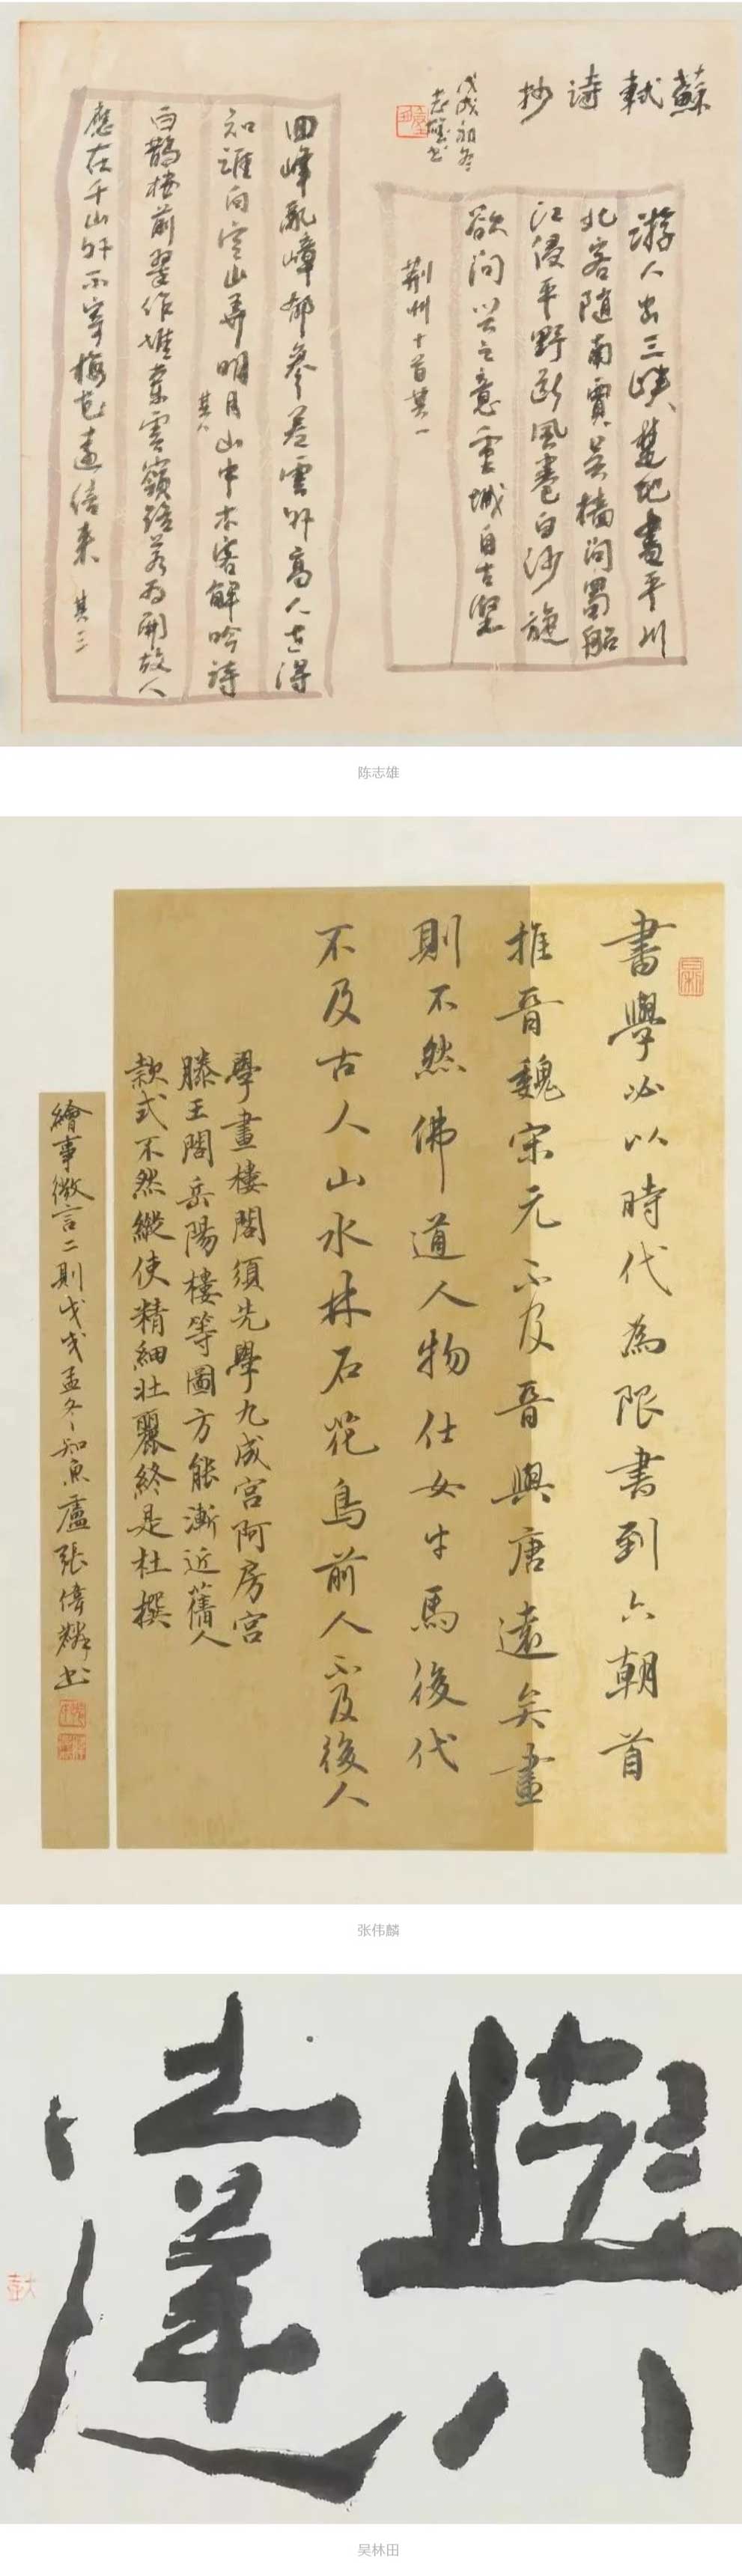 蘇軾詩抄
游人出三峽楚地盡平川
北客隨南賈吳檣間蜀船
江侵平野斷風卷白沙旋
欲問興亡意重城自古堅
荆州十首其一
戊戌初冬
志雄书
回峰亂嶂郁參差雲外高人世得
知誰向空山弄明月山中木客解吟詩
其八
白鵲樓前翠作堆縈雲嶺路若為開故人
應在千山外不寄梅花遠信來 其三
陈志雄
書學必以時代為限書到六朝首
推晉魏宋元不及晉與唐遠矣畫
則不然佛道人物仕女牛馬後代
不及古人山水林石花鳥前人不及後人
學畫樓閣須先學九成宫阿房宫
滕王閣岳陽樓等圖方能漸近舊人
款式不然縱使精細壯麗終是杜撰
繪事微言二則戊戌孟冬知魚廬張偉麟书
张伟麟
與
達
吴林田